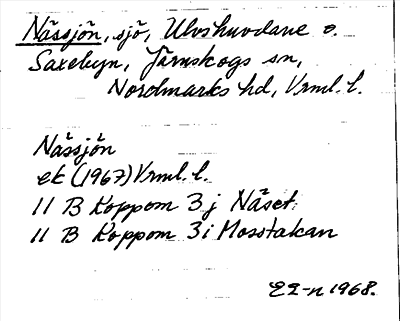 Nässjön, sjö, Ulvshuvdane o.
Saxebyn, Järnskogs sn,
Nordmarks hd, Vrml. l.
Nässjön
ek (1967) Vrml. l.
11 B Koppom 3 j Näset
11 B Koppom 3 i Mosstakan
1968.